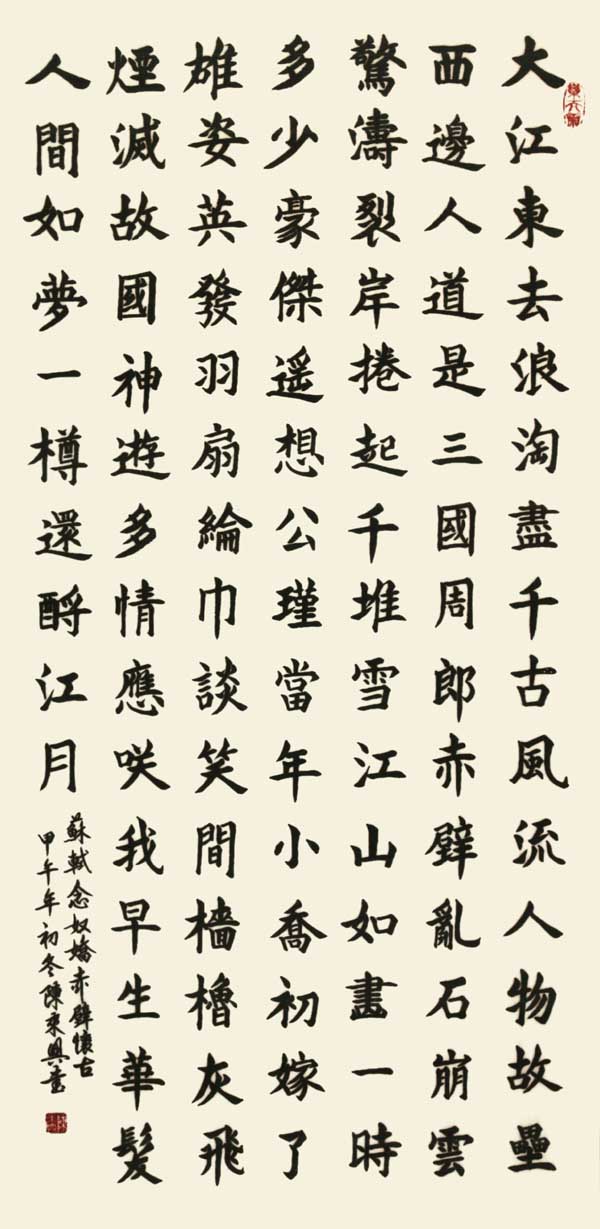 大江東去浪淘盡千古風流人物故壘
西邊人道是三國周郎赤壁亂石崩雲
驚濤裂岸捲起千堆雪江山如畫一時
多少豪傑遥想公瑾當年小喬初嫁了
雄姿英發羽扇綸巾談笑間檣櫓灰飛
煙滅故國神遊多情應咲我早生華髮
人間如夢一樽還酹江月
蘇軾念奴嬌赤壁懷古
甲午年初冬陳秉興書